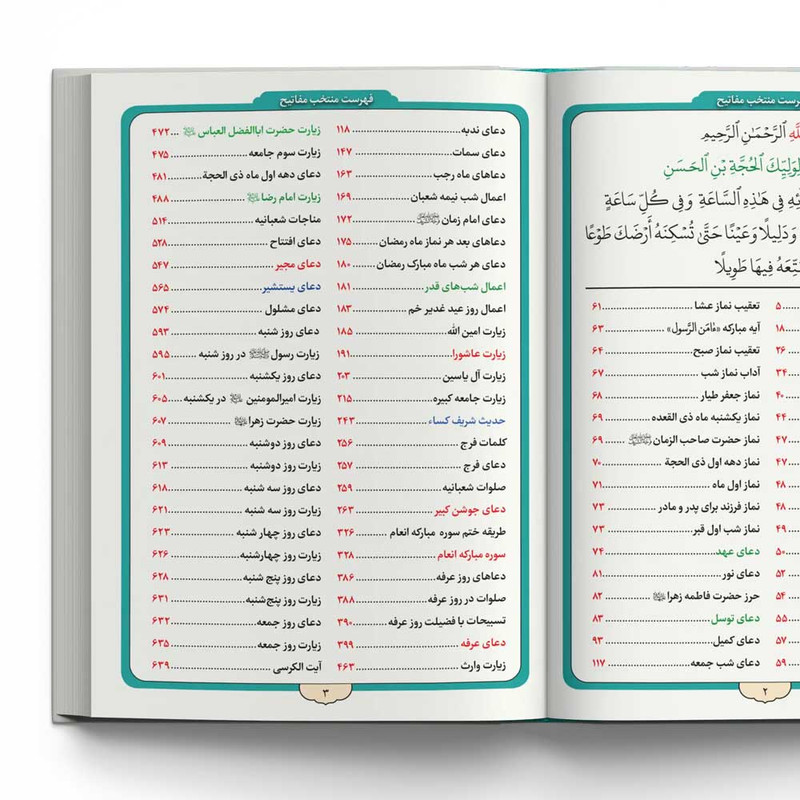 فهرست منتخب مفاتیح
ٱلرَّحْمَٰنِ ٱلرَّحِيمِ
لِوَلِيِّكَ ٱلْحُجَّةِ بْنِ ٱلْحَسَنِ
فِي هَٰذِهِ ٱلسَّاعَةِ وَفِي كُلِّ سَاعَةٍ
وَدَلِيلًا وَعَيْنًا حَتَّىٰ تُسْكِنَهُ أَرْضَكَ طَوْعًا
فِيهَا طَوِيلًا
۵
۱۸
۲۶
۳۴
۴۰
۴۴
۴۷
۴۷
۴۸
۴۸
۴۹
۵۰
۵۲
۵۴
۵۵
۵۷
۵۹
تعقیب نماز عشا ۶۱
آیه مبارکه «ءَامَنَ الرَّسول» ۶۳
تعقیب نماز صبح ۶۴
آداب نماز شب ۶۷
نماز جعفر طیار ۶۸
نماز یکشنبه ماه ذی القعده ۶۹
نماز حضرت صاحب الزمان ۶۹
نماز دهه اول ذی الحجة ۷۰
نماز اول ماه ۷۱
نماز فرزند برای پدر و مادر ۷۳
نماز شب اول قبر ۷۳
دعای عهد ۷۴
دعای نور ۸۱
حرز حضرت فاطمه زهرا ۸۲
دعای توسل ۸۳
دعای کمیل ۹۳
دعای شب جمعه ۱۱۷
۲
فهرست منتخب مفاتیح
دعای ندبه ۱۱۸
دعای سمات ۱۴۷
دعاهای ماه رجب ۱۶۳
اعمال شب نیمه شعبان ۱۶۹
دعای امام زمان ۱۷۲
دعاهای بعد هر نماز ماه رمضان ۱۷۵
دعای هر شب ماه مبارک رمضان ۱۸۰
اعمال شب‌های قدر ۱۸۱
اعمال روز عید غدیر خم ۱۸۳
زیارت امین الله ۱۸۵
زیارت عاشورا ۱۹۱
زیارت آل یاسین ۲۰۳
زیارت جامعه کبیره ۲۱۵
حدیث شریف کساء ۲۴۳
کلمات فرج ۲۵۶
دعای فرج ۲۵۷
صلوات شعبانیه ۲۵۹
دعای جوشن کبیر ۲۶۳
طریقه ختم سوره مبارکه انعام ۳۲۶
سوره مبارکه انعام ۳۲۸
دعاهای روز عرفه ۳۸۶
صلوات در روز عرفه ۳۸۸
تسبیحات با فضیلت روز عرفه ۳۹۰
دعای عرفه ۳۹۹
زیارت وارث ۴۶۳
زیارت حضرت اباالفضل العباس ۴۷۲
زیارت سوم جامعه ۴۷۵
دعای دهه اول ماه ذی الحجة ۴۸۱
زیارت امام رضا ۴۸۸
مناجات شعبانیه ۵۱۴
دعای افتتاح ۵۲۸
دعای مجیر ۵۴۷
دعای یستشیر ۵۶۵
دعای مشلول ۵۷۴
دعای روز شنبه ۵۹۳
زیارت رسول در روز شنبه ۵۹۵
دعای روز یکشنبه ۶۰۱
زیارت امیرالمومنین در یکشنبه ۶۰۵
زیارت حضرت زهرا ۶۰۷
دعای روز دوشنبه ۶۰۹
زیارت روز دوشنبه ۶۱۳
دعای روز سه شنبه ۶۱۸
زیارت روز سه شنبه ۶۲۱
دعای روز چهار شنبه ۶۲۳
زیارت روز چهارشنبه ۶۲۶
دعای روز پنج شنبه ۶۲۸
زیارت روز پنج‌شنبه ۶۳۱
دعای روز جمعه ۶۳۲
زیارت روز جمعه ۶۳۵
آیت الکرسی ۶۳۹
۳